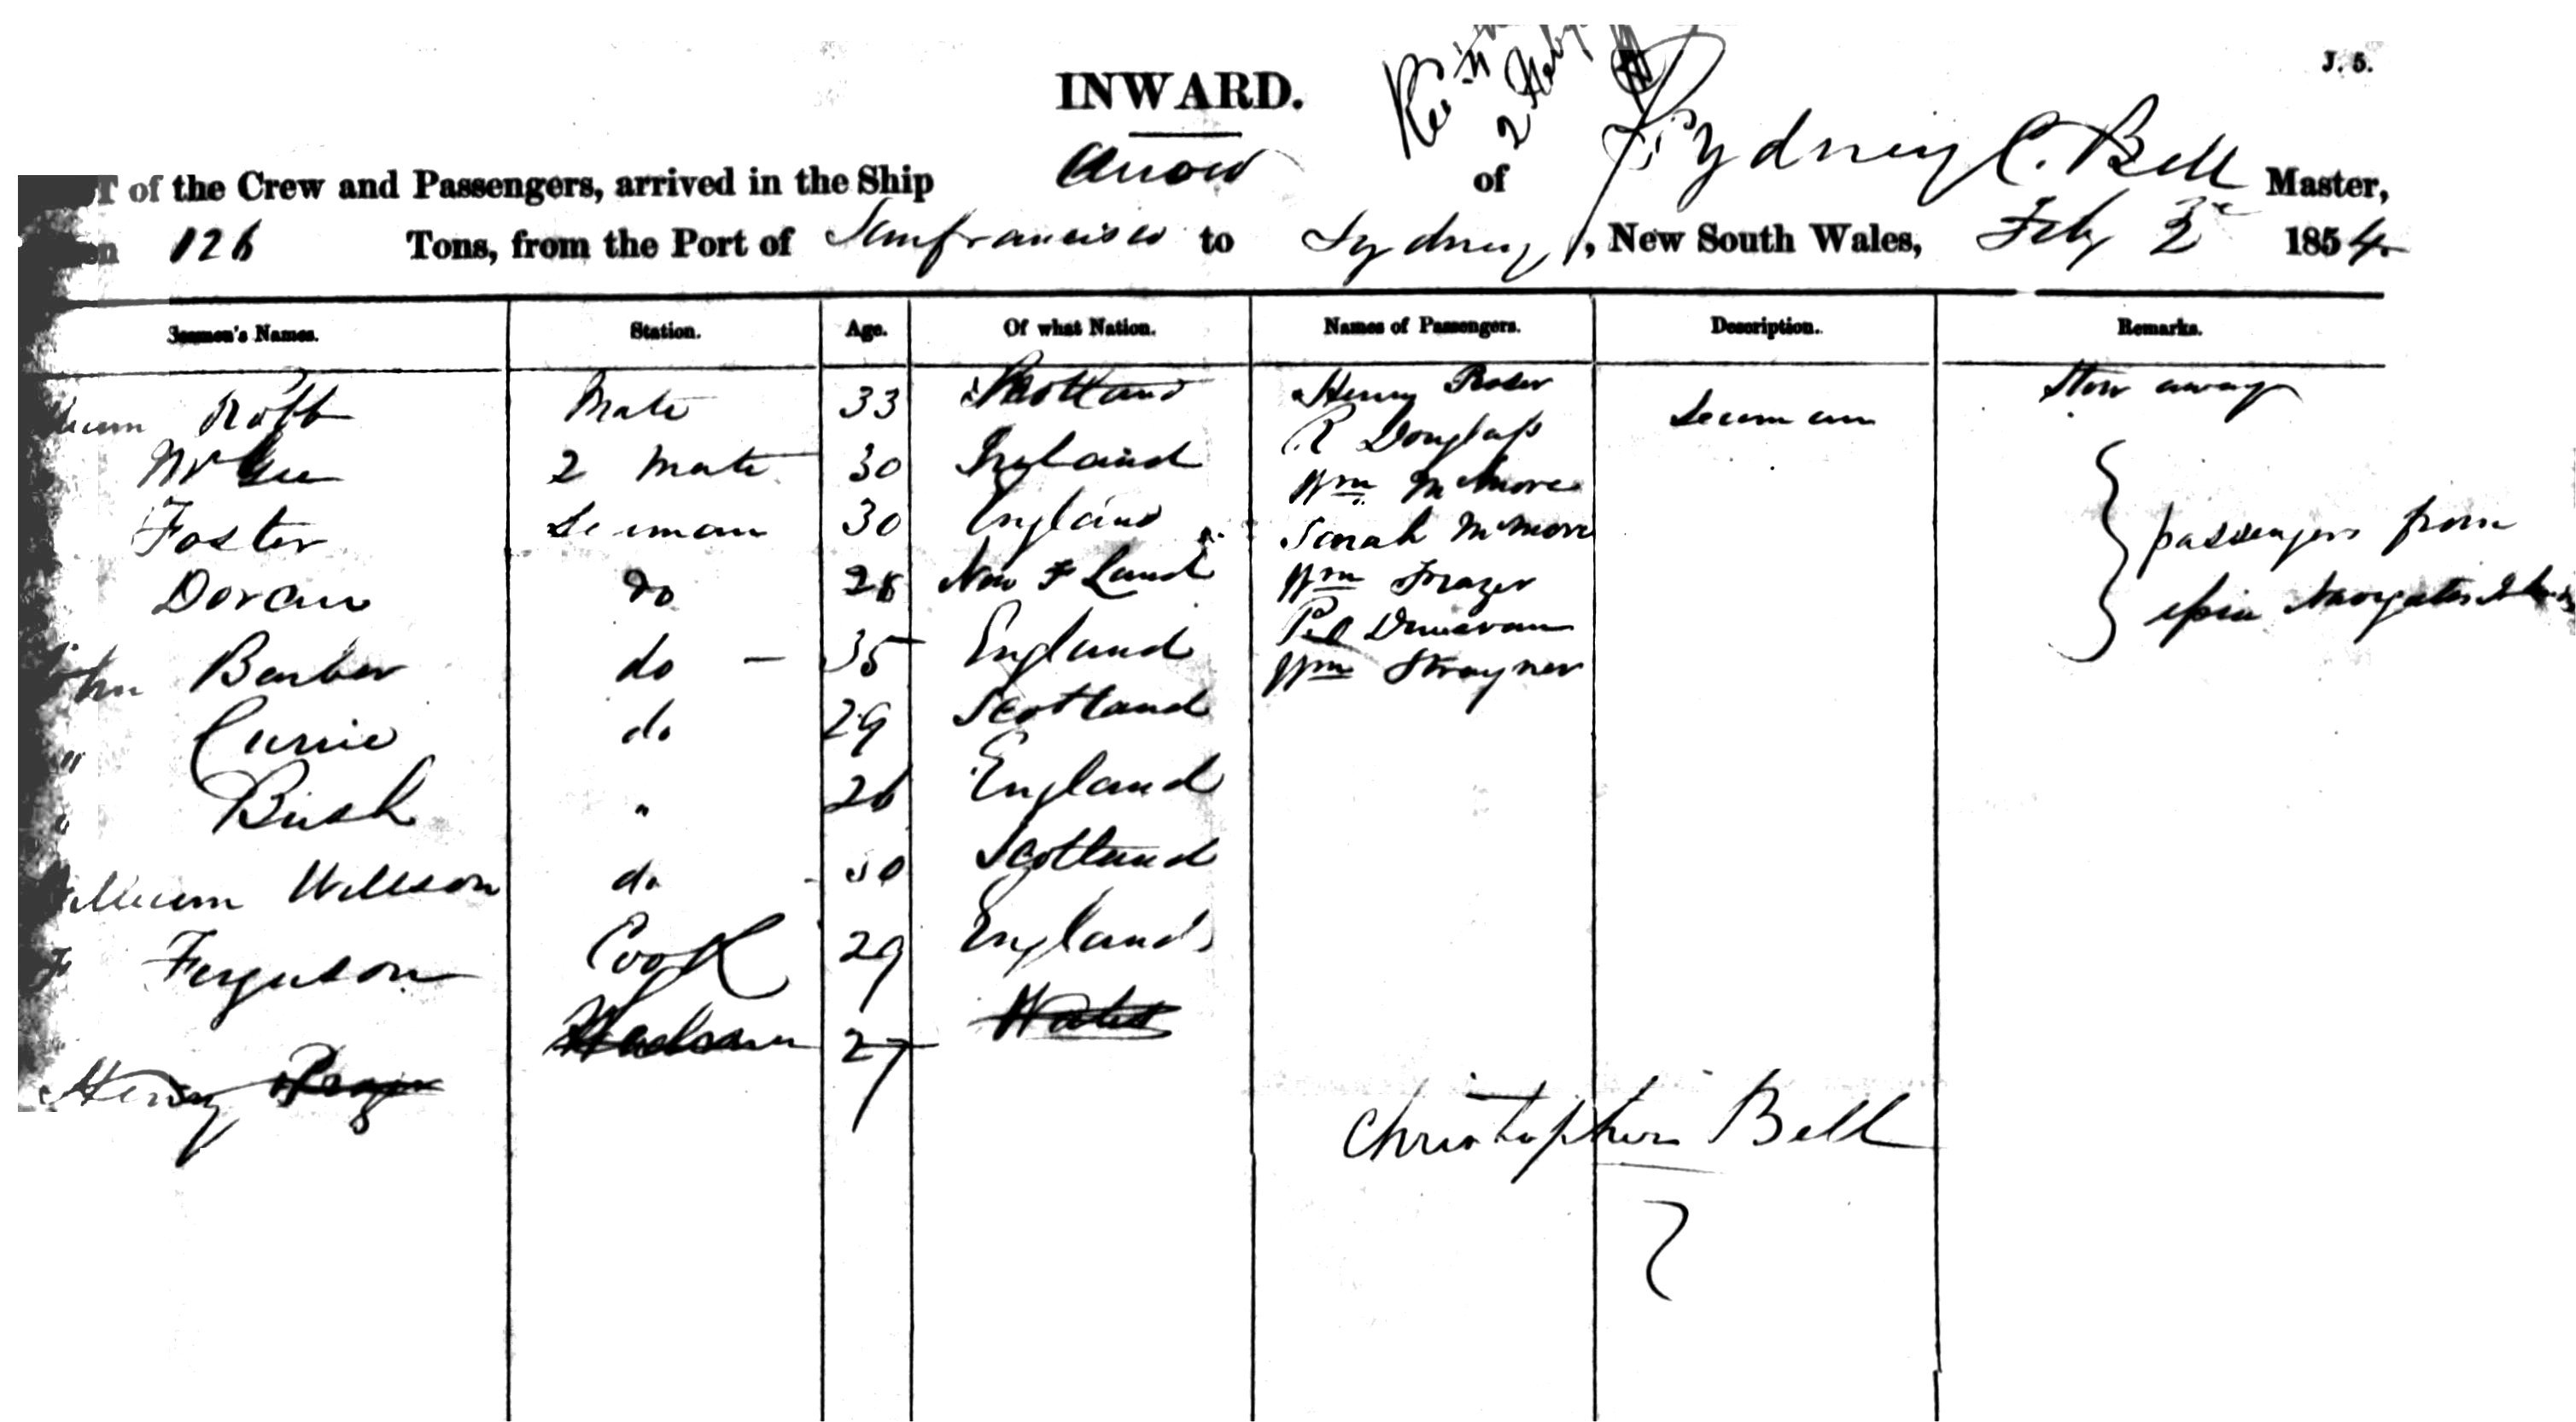 J. 5.
INWARD.
of the Crew and Passengers, arrived in the Ship Arrow of Sydney C. Bell Master,
126 Tons, from the Port of Sanfrancisco to Sydney, New South Wales, Feby 1854
Seamen's Names. Station. Age. Of what Nation. Names of Passengers. Description. Remarks.
Robb Mate 33 Scotland Henry Stow away
R Douglass Seaman
2 Mate 30
Wm
Foster Seaman 30 England Sarah
Doran do 28 New F Land Wm Frazer
Donavan
Barber do 35 England Wm Strayner
passengers from
Currie do 29 Scotland
Bush " 26 England
William Willson do 30 Scotland
Ferguson Cook 29 England
Henry 27 Wales
Christopher Bell